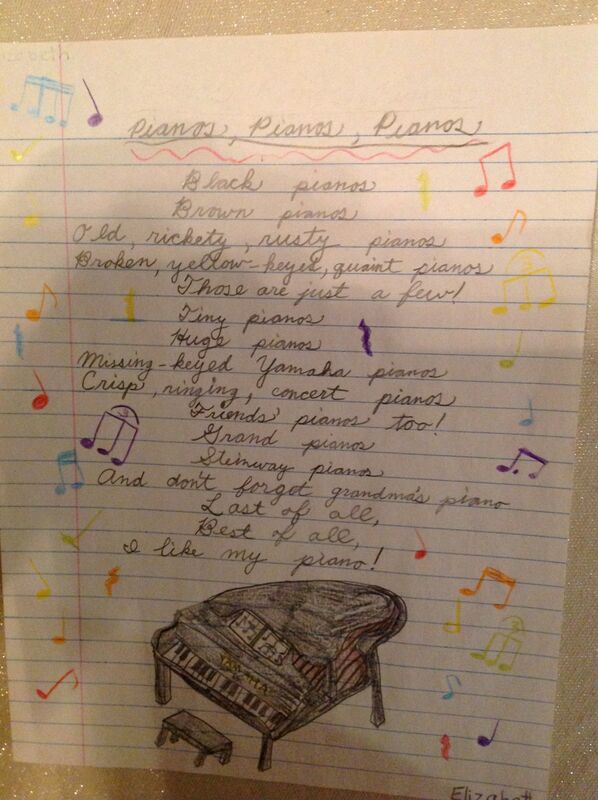 Elizabeth
Pianos, Pianos, Pianos
Black pianos
Brown pianos
Old, rickety, rusty pianos
Broken, yellow-keyed, quaint pianos
Those are just a few!
Tiny pianos
Huge pianos
Missing-keyed Yamaha pianos
Crisp, ringing, concert pianos
Friends' pianos too!
Grand pianos
Steinway pianos
And don't forget grandma's piano
Last of all,
Best of all,
I like my piano!
Elizabeth